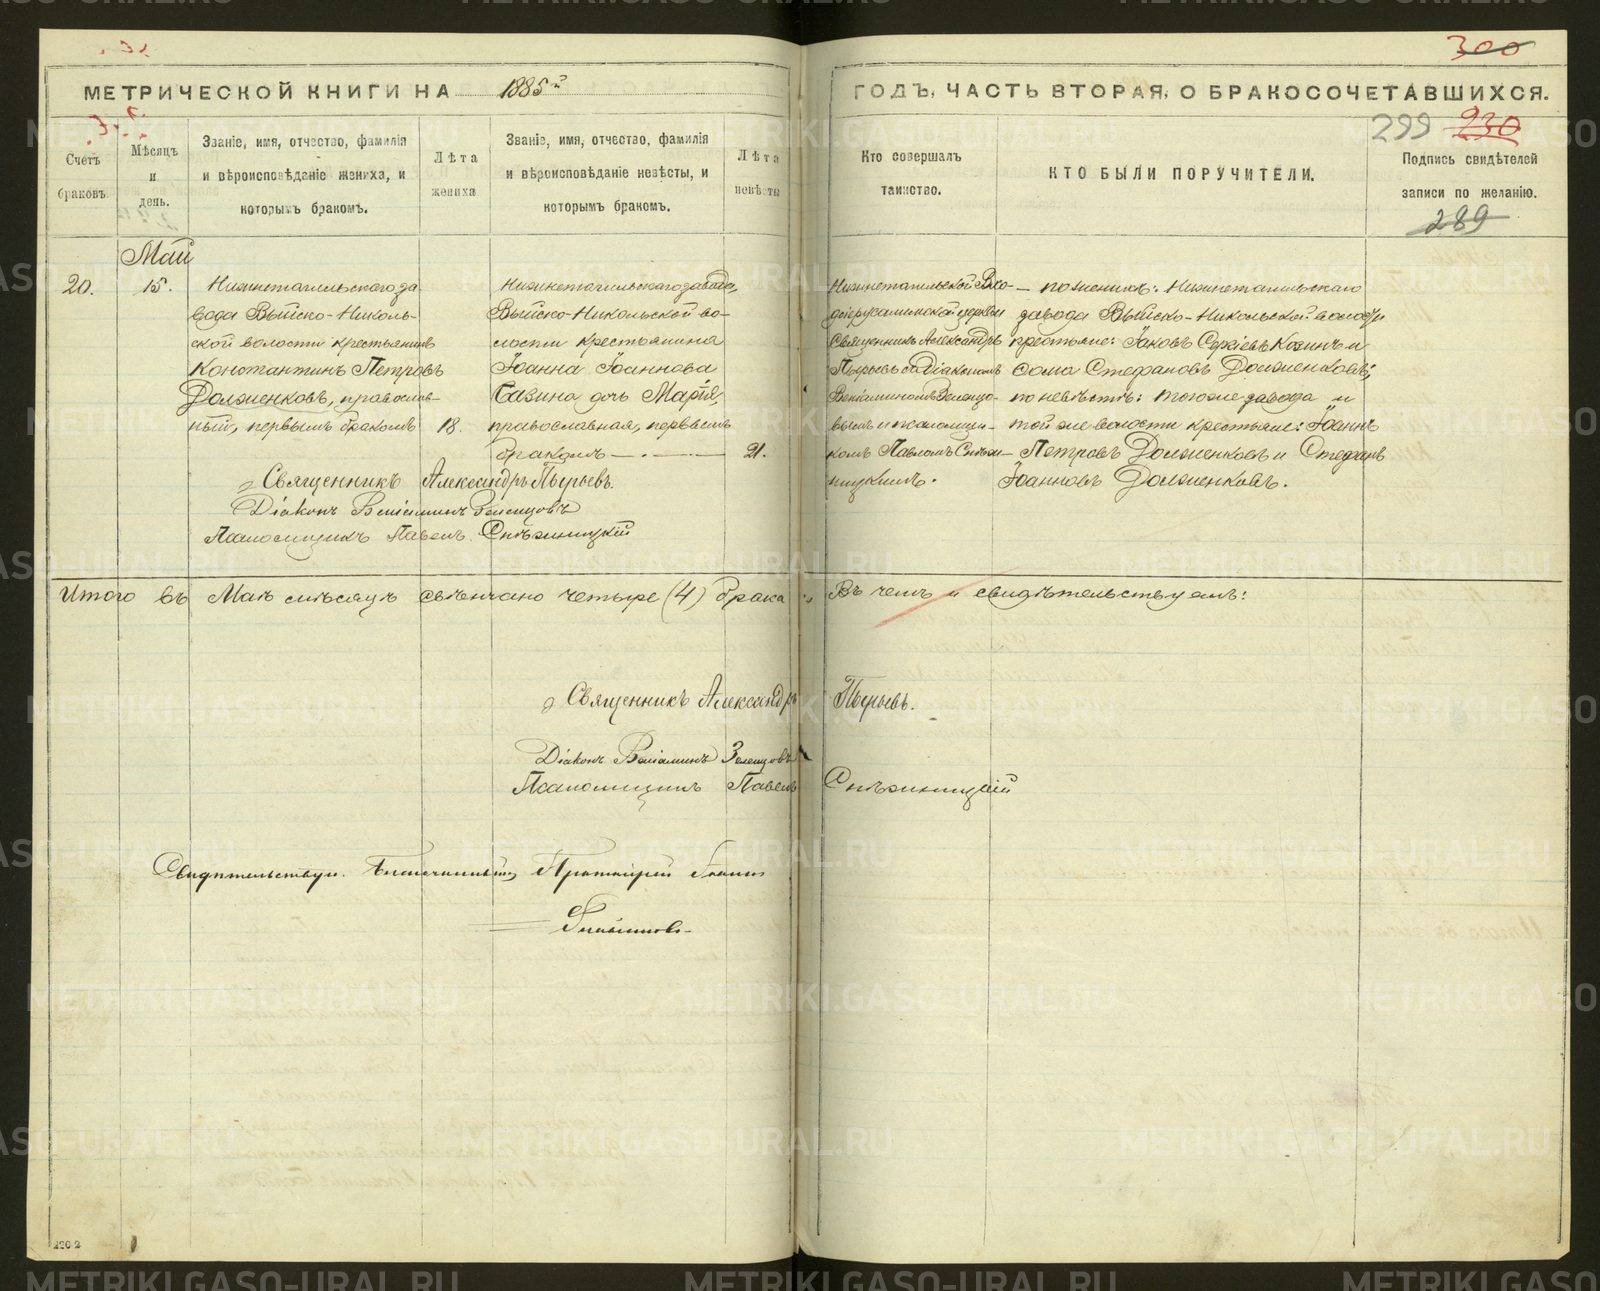 300
МЕТРИЧЕСКОЙ КНИГИ НА 1885й
ГОДЪ, ЧАСТЬ ВТОРАЯ, О БРАКОСОЧЕТАВШИХСЯ.
299 230
289
Счетъ
браковъ.
Мѣсяцъ
и
день.
Званіе, имя, отчество, фамилія
и вѣроисповѣданіе жениха, и
которымъ бракомъ.
Лѣта
жениха
Званіе, имя, отчество, фамилія
и вѣроисповѣданіе невѣсты, и
которымъ бракомъ.
Лѣта
невѣсты
Кто совершалъ
таинство.
КТО БЫЛИ ПОРУЧИТЕЛИ.
Подпись свидѣтелей
записи по желанію.
Май
20.
15.
Нижнетагильскаго за
вода Выйско-Николь-
ской волости крестьянинъ
Константинъ Петровъ
Долженковъ, православ-
ный, первымъ бракомъ
18.
Нижнетагильскаго завода,
Выйско-Никольской во-
лости крестьянина
Іоанна Іоаннова
дочь Марія,
православная, первымъ
бракомъ
21.
Нижнетагильской Вхо-
доіерусалимской церкви
Священникъ Александръ
Пырьевъ съ Діакономъ
Веніаминомъ Зеленцо-
вымъ и псаломщи-
комъ Павломъ Снѣжи-
ницкимъ.
по женихѣ: Нижнетагильскаго
завода Выйско-Никольской волости
крестьяне: Іаковъ Сергіевъ Козинъ и
Ѳома Стефановъ Долженковъ;
по невѣстѣ: тогоже завода и
той же волости крестьяне: Іоаннъ
Петровъ Долженковъ и Стефанъ
Іоанновъ Долженковъ.
Священникъ Александръ Пырьевъ.
Діаконъ Веніаминъ Зеленцовъ
Псаломщикъ Павелъ Снѣжницкій
Итого въ Маѣ мѣсяцѣ свѣнчано четыре (4) брака
Въ чемъ и свидѣтельствуемъ:
Священникъ Александръ Пырьевъ.
Діаконъ Веніаминъ Зеленцовъ
Псаломщикъ Павелъ Снѣжницкій
Свидѣтельствую. Благочинный, Протоіерей Іоаннъ
METRIKI.GASO-URAL.RU